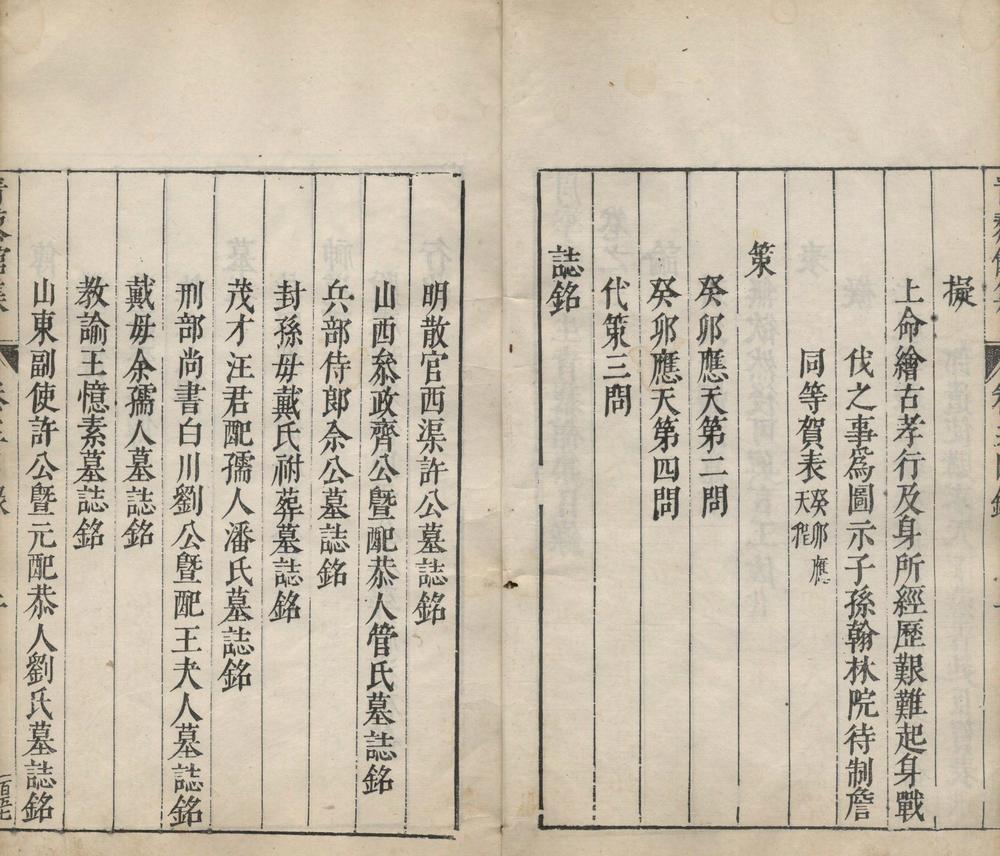 擬
上命繪古孝行及身所經歷艱難起身戰
伐之事爲圖示子孫翰林院待制詹
同等賀表癸卯應天程
策
癸卯應天第二問
癸卯應天第四問
代策三問
誌銘
明散官西渠許公墓誌銘
山西叅政齊公曁配恭人管氏墓誌銘
兵部侍郎余公墓誌銘
封孫母戴氏祔葬墓誌銘
茂才汪君配孺人潘氏墓誌銘
刑部尚書白川劉公曁配王夫人墓誌銘
戴母余孺人墓誌銘
教諭王憶素墓誌銘
山東副使許公曁元配恭人劉氏墓誌銘